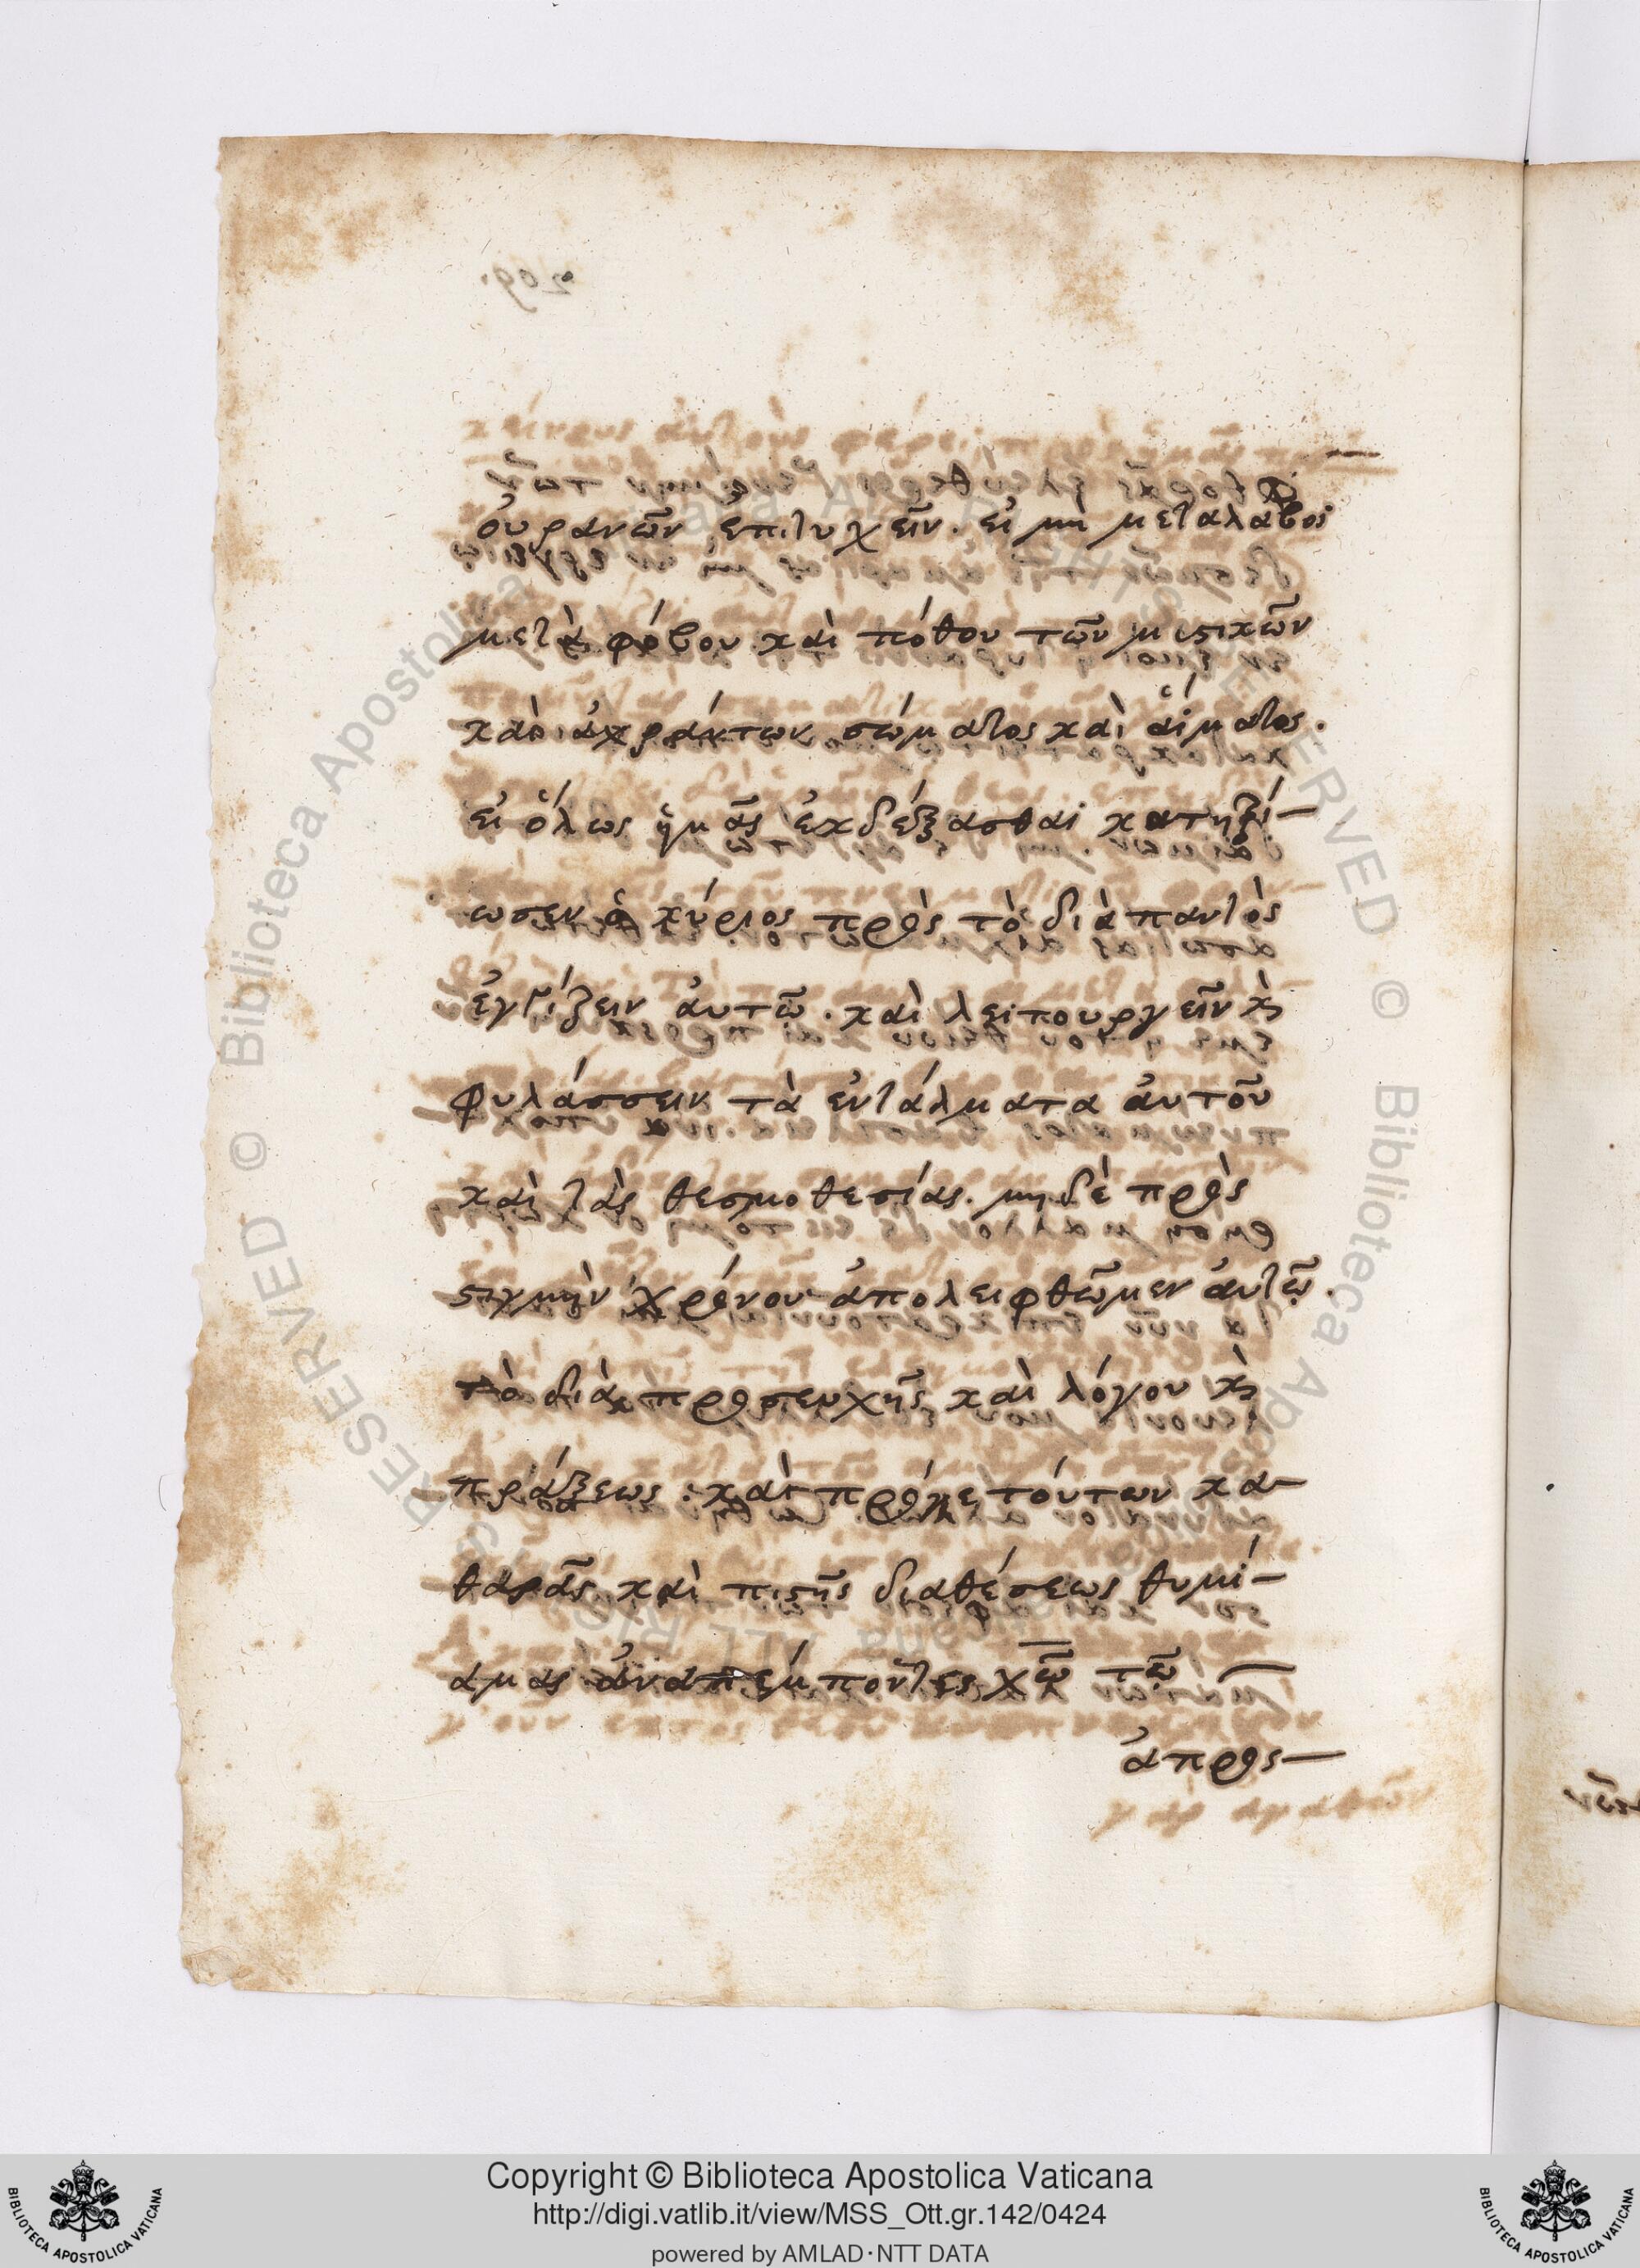 οὐρανῶν ἐπιτυχεῖν. εἰ μὴ μεταλάβοι
μετὰ φόβου καὶ πόθου τῶν μυστικῶν
καὶ ἀχράντων σώματος καὶ αἵματος.
εἰ ὅλως ἡμᾶς ἐκδέξασθαι κατηξί-
ωσεν ὁ κύριος πρὸς τὸ διὰ παντὸς
ἐγγίζειν αὐτῶ. καὶ λειτουργεῖν κ(αὶ)
φυλάσσειν τὰ ἐντάλματα αὐτοῦ
καὶ τὰς θεσμοθεσίας. μηδὲ πρὸς
στιγμὴν χρόνου ἀπολειφθῶμεν αὐτῶ.
τὸ διὰ προσευχῆς καὶ λόγου κ(αὶ)
πράξεως. καὶ πρό γε τούτων κα-
θαρᾶς καὶ πιστῆς διαθέσεως θυμί-
αμας ἀναπέμποντες χω τῶ
ἀπρος-
Copyright © Biblioteca Apostolica Vaticana
http://digi.vatlib.it/view/MSS_Ott.gr.142/0424
powered by AMLAD·NTT DATA